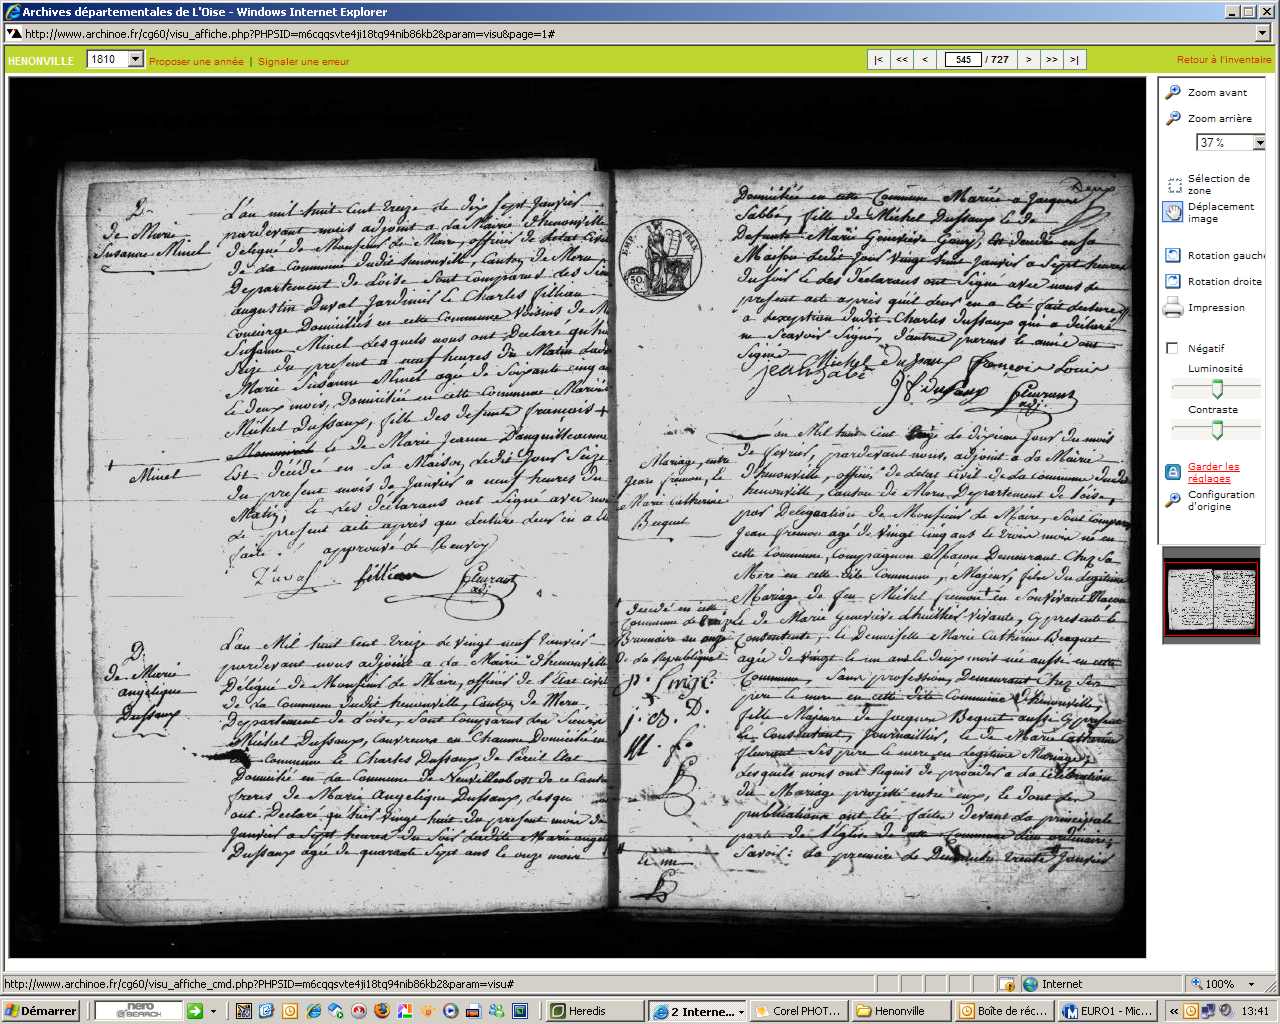 Archives départementales de L'Oise - Windows Internet Explorer
http://www.archinoe.fr/cg60/visu_affiche.php?PHPSID=m6cqqsvte4ji18tq94nib86kb2&param=visu&page=1#
HENONVILLE 1810 Proposer une année | Signaler une erreur |< << < 545 / 727 > >> >| Retour à l'inventaire
Zoom avant
Zoom arrière
37 %
Sélection de
zone
Déplacement
image
Rotation gauche
Rotation droite
Impression
Négatif
Luminosité
Contraste
Garder les
réglages
Configuration
d'origine
D.
de Marie
Susanne Minel
L'an mil huit cent treize le dix sept Janvier
pardevant nous adjoint a la Mairie d'henonville
délégué de Monsieur le Maire, officier de l'etat Civil
de la Commune dudit henonville, Canton de Meru
Departement de Loise sont comparus les Sieurs
augustin Duval Jardinier et Charles fillian
Concierge Domiciliés en cette Commune voisins de M
Susanne Minel Lesquels nous ont Declaré qu'hier
Seize du present a neuf heures du Matin Ladite
Marie Susanne Minel agée de Soixante cinq an
et deux mois, Domiciliée en cette Commune Mariée
Michel Dussaux, fille des defunts francois +
et de Marie Jeanne
Est décédée en Sa Maison, ledit Jour Seize
Minel
Du present mois de Janvier a neuf heures du
Matin, et les déclarans ont Signé avec nous
le present acte apres que lecture leur en a été
faite. approuvé le Renvoy
Duval fillian fleurant
adj.
D.
de Marie
angelique
Dussaux
L'an Mil huit Cent treize le vingt neuf Janvier
pardevant nous adjoint a la Mairie d'henonville
Délégué de Monsieur le Maire, officier de l'Etat civil
de la Commune dudit henonville, Canton de Meru
Departement de L'oise, sont Comparus les Sieurs
Michel Dussaux, Couvreur en Chaume Domicilié en
Commune et Charles Dussaux de Pareil Etat
Domicilié en la Commune de Neuvillebosc de ce Canton
freres de Marie angelique Dussaux, lesquels
ont Declaré qu'hier vingt huit du present mois de
Janvier a Sept heures du Soir Ladite Marie angelique
Dussaux agée de quarante Sept ans et onze mois
Deux
EMP. FRAN.
50.
C.
Domiciliée en cette Commune Mariée a Jacques
Sabbé, fille de Michel Dussaux et de
Defunte Marie Genevieve Gouy, Est décédée en Sa
Maison Ledit Jour vingt huit Janvier a Sept heures
du soir et les déclarans ont Signé avec nous le
present acte après qu'il leur en a Eté fait lecture
a l'exception dudit Charles Dussaux qui a déclaré
ne Scavoir Signer, d'autre parens et amie ont
Signé Michel dusaux francois Louis
jean Sabé
dusaux fleurant
adj.
Mariage, entre
Jean fremon, et
Marie Catherine
Becquet
an Mil huit Cent treize le dixieme Jour du mois
de fevrier, pardevant nous, adjoint a la Mairie
d'henonville, officier de l'etat civil de la Commune dudit
henonville, Canton de Meru Departement de L'oise,
par Delegation de Monsieur le Maire, Sont Comparus
Jean fremon agé de vingt cinq ans et trois mois né en
cette Commune, Compagnon Macon Demeurant Chez Sa
Mere en cette dite Commune, Majeur, fils du légitime
Mariage de feu Michel fremon + en Son vivant Macon
décédé en cette
Commune le
Brumaire an onze
de la Republique
et de Marie Genevieve Lhuillier vivante, Cypresente et
Consentente, et Demoiselle Marie Catherine Becquet
agée de vingt et un ans et deux mois née aussi en cette
Commune, Sans profession, Demeurant Chez Ses
pere et mere en cette dite Commune d'henonville,
fille Majeure de Jacques Bequet aussi Cypresent
et Consentant, Journaillier, et de Marie Catherine
fleurant Ses pere et mere en Legitime Mariage,
Lesquels nous ont Requis de proceder a la célébration
du Mariage projetté entre eux, et dont les
publications ont Eté faites devant la principale
porte de l'Eglise de cette Commune lieu ordinaire,
Savoir: La premiere le Dimanche trente Janvier
http://www.archinoe.fr/cg60/visu_affiche_cmd.php?PHPSID=m6cqqsvte4ji18tq94nib86kb2&param=visu# Internet 100%
Démarrer nero SEARCH Heredis 2 Interne... Corel PHOT... Henonville Boîte de réc... EURO1 - Mic... 13:41